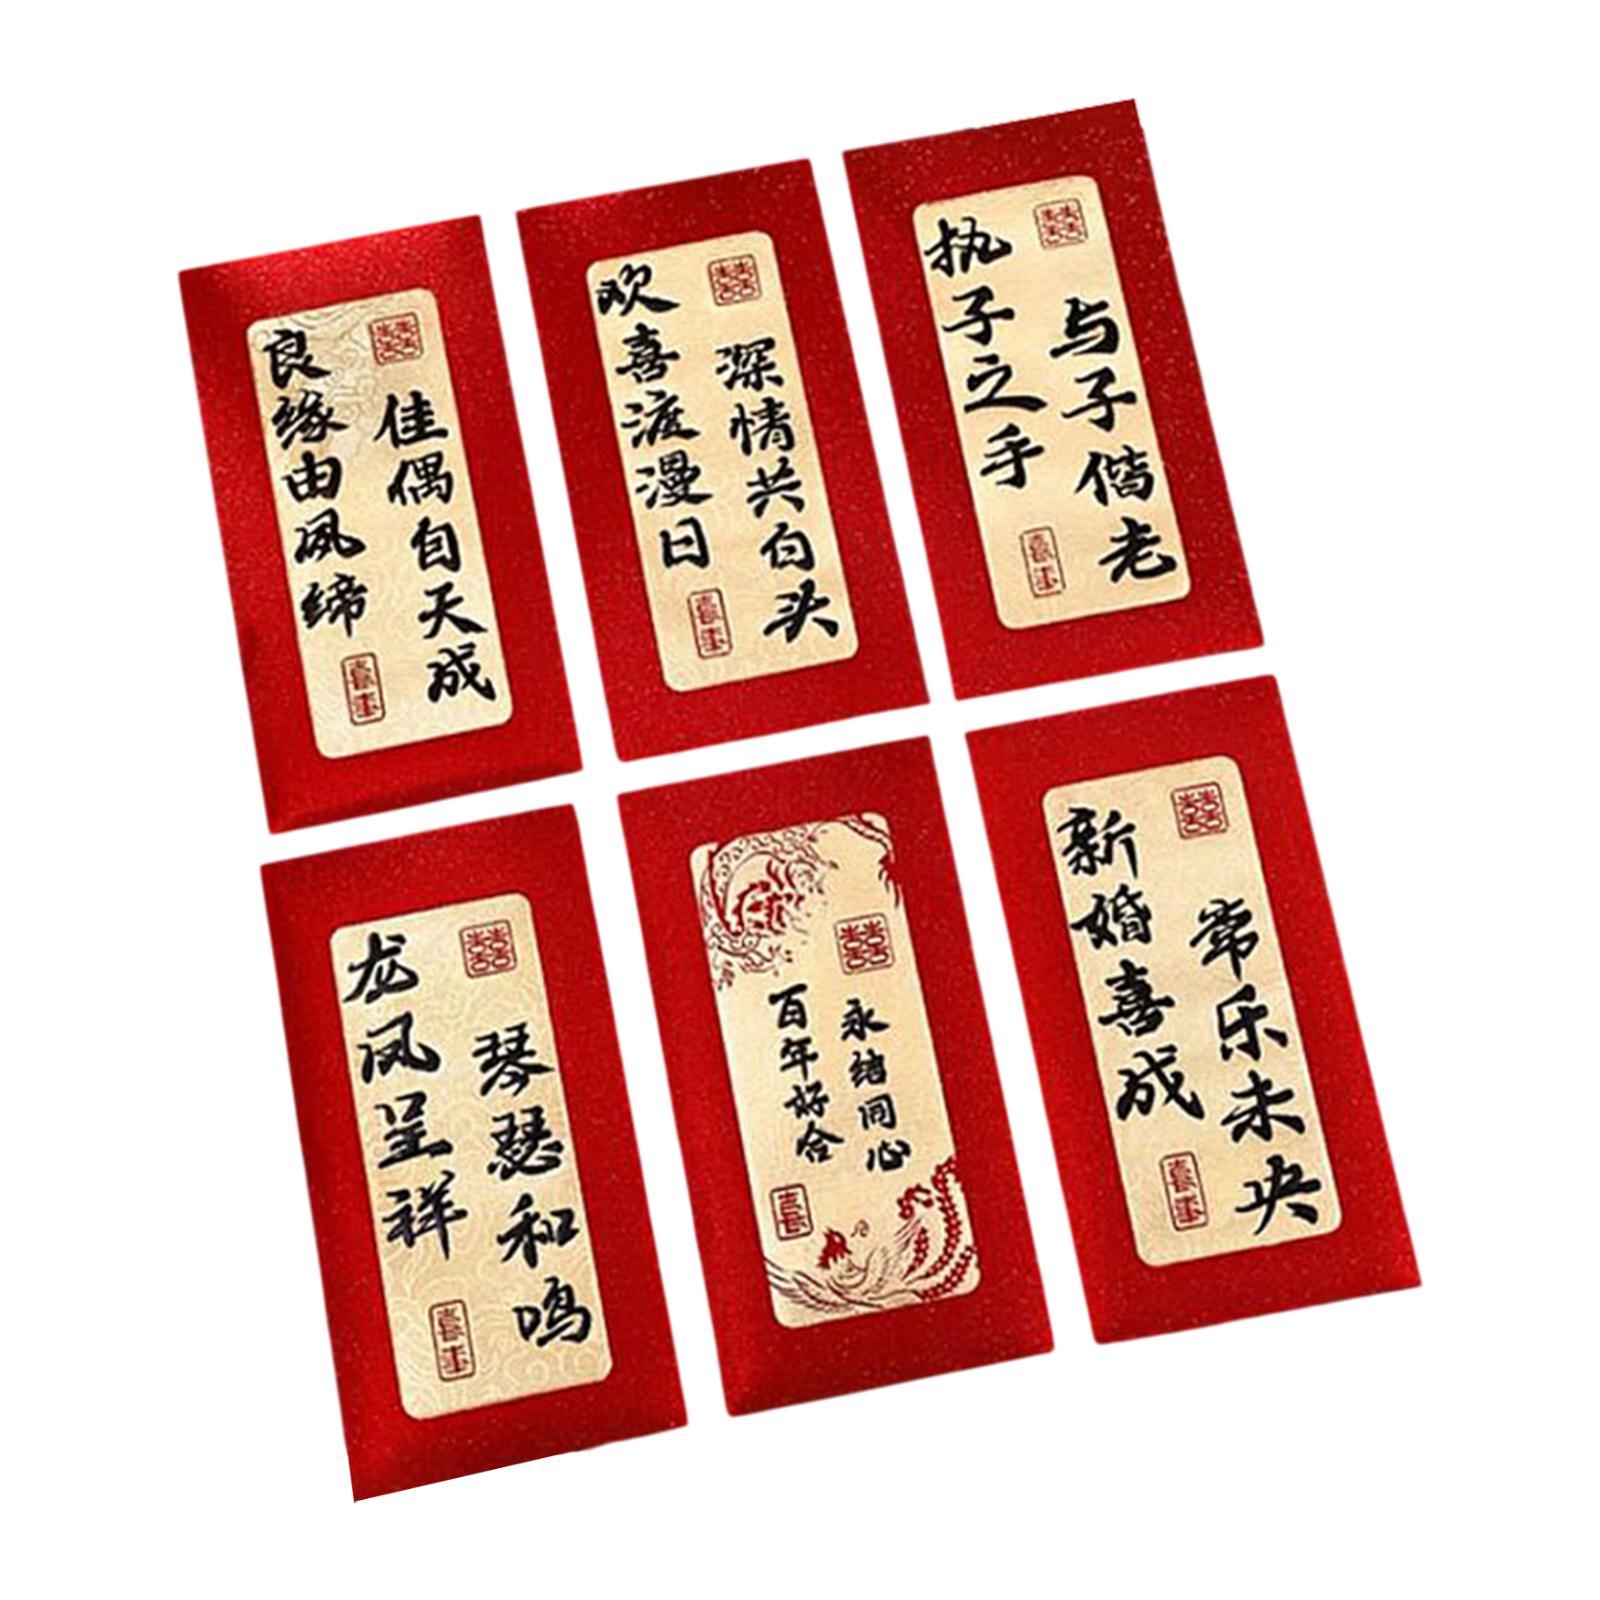 囍
良缘由夙缔
佳偶自天成
囍
欢喜渡漫日
深情共白头
囍
执子之手
与子偕老
囍
龙凤呈祥
琴瑟和鸣
囍
百年好合
永结同心
喜
囍
新婚喜成
常乐未央